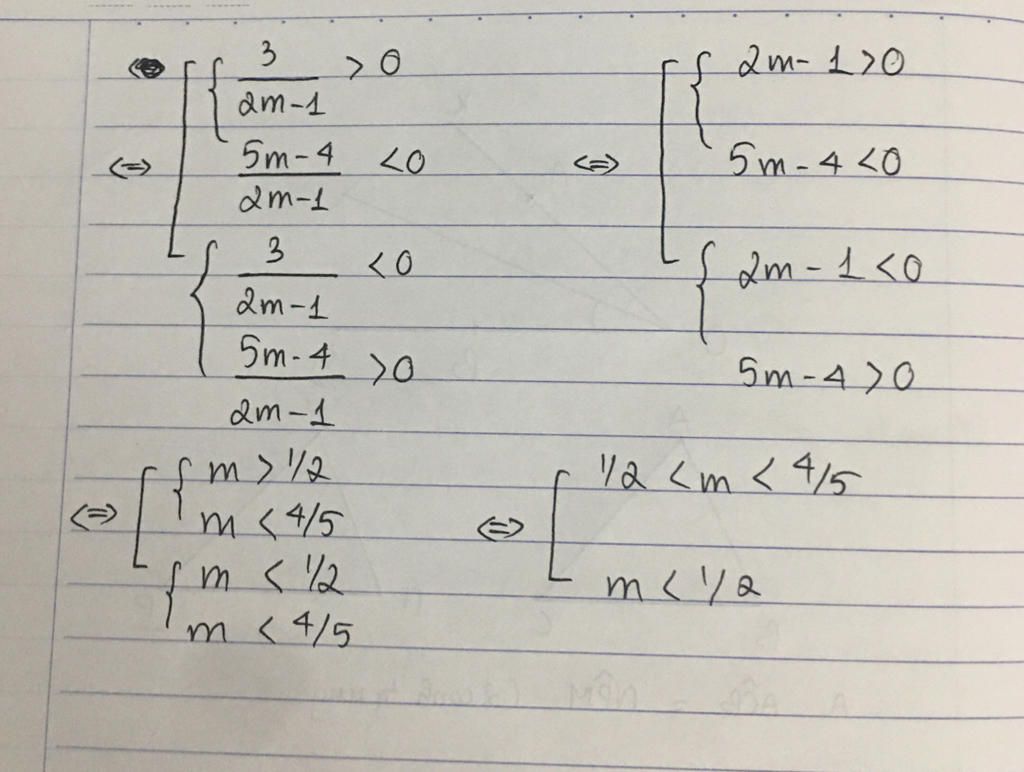 ⇔ [ { 3/(2m-1) > 0
(5m-4)/(2m-1) < 0
{ 3/(2m-1) < 0
(5m-4)/(2m-1) > 0
⇔ [ { 2m-1 > 0
5m-4 < 0
{ 2m-1 < 0
5m-4 > 0
⇔ [ { m > 1/2
m < 4/5
{ m < 1/2
m < 4/5
⇔ [ 1/2 < m < 4/5
m < 1/2